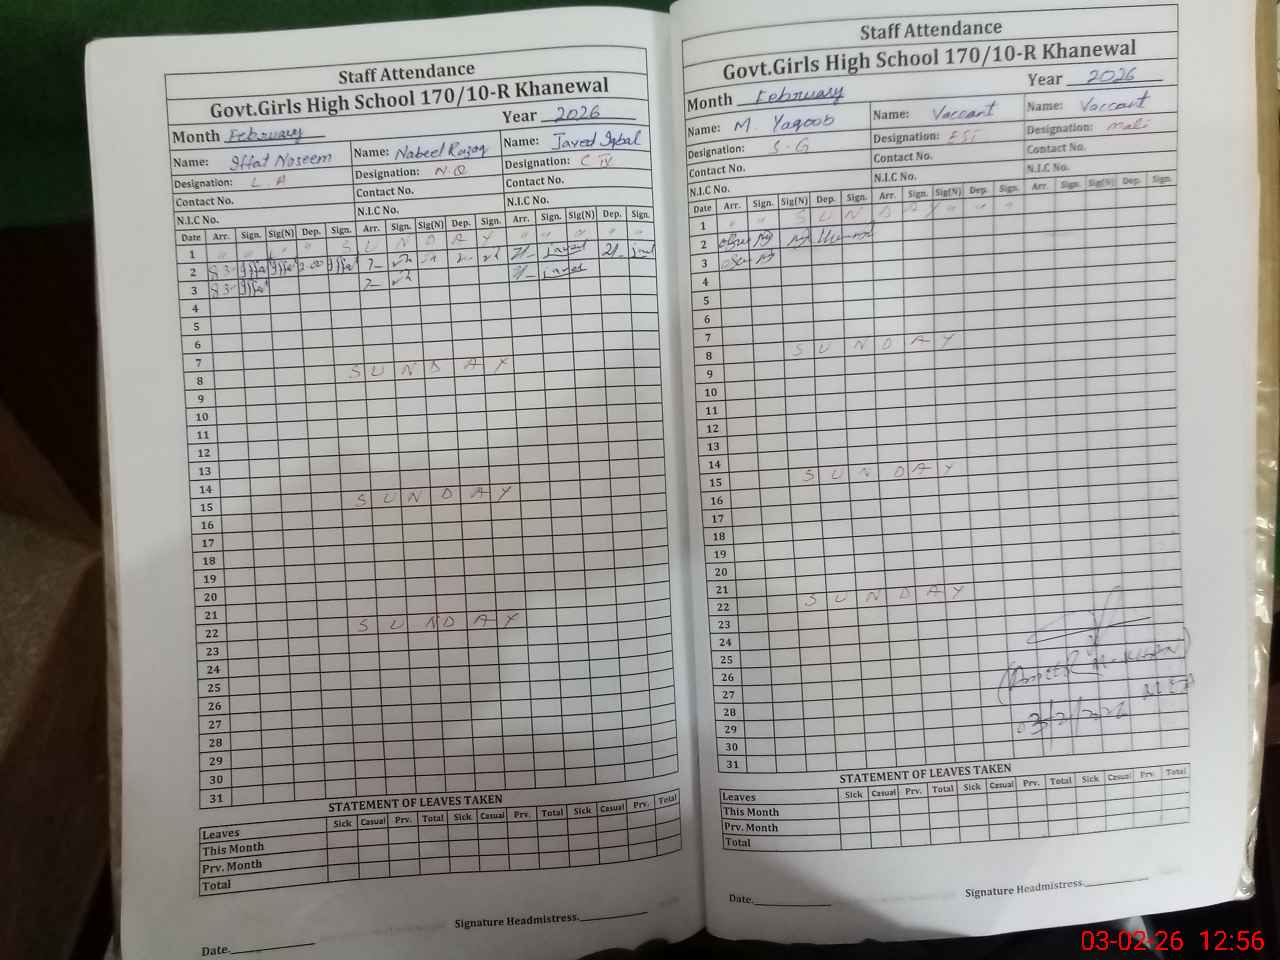 Staff Attendance
Govt.Girls High School 170/10-R Khanewal
Month February Year 2026
Name: Iffat Naseem Name: Nabeel Razaq Name: Javed Iqbal
Designation: L.A Designation: N.Q Designation: C IV
Contact No. Contact No. Contact No.
N.I.C No. N.I.C No. N.I.C No.
Date Arr. Sign. Sig(N) Dep. Sign. Arr. Sign. Sig(N) Dep. Sign. Arr. Sign. Sig(N) Dep. Sign.
1 " " S U N D A Y " " " "
2 83 Iffat Iffat 2:00 Iffat 7- 7/- javed 2/-
3 83 Iffat 7- 7/- javed
4
5
6
7
8 S U N D A Y
9
10
11
12
13
14
15 S U N D A Y
16
17
18
19
20
21
22 S U N D A Y
23
24
25
26
27
28
29
30
31
STATEMENT OF LEAVES TAKEN
Leaves Sick Casual Prv. Total Sick Casual Prv. Total Sick Casual Prv. Total
This Month
Prv. Month
Total
Signature Headmistress.
Date.
Staff Attendance
Govt.Girls High School 170/10-R Khanewal
Month February Year 2026
Name: M. Yaqoob Name: Vaccant Name: Vaccant
Designation: S.G Designation: EST Designation: mali
Contact No. Contact No. Contact No.
N.I.C No. N.I.C No. N.I.C No.
Date Arr. Sign. Sig(N) Dep. Sign. Arr. Sign. Sig(N) Dep. Sign. Arr. Sign. Sig(N) Dep. Sign.
1 " " S U N D A Y " " "
2
3
4
5
6
7
8 S U N D A Y
9
10
11
12
13
14
15 S U N D A Y
16
17
18
19
20
21
22 S U N D A Y
23
24
25
26
27
28
29
30
31
03/2/2026
STATEMENT OF LEAVES TAKEN
Leaves Sick Casual Prv. Total Sick Casual Prv. Total Sick Casual Prv. Total
This Month
Prv. Month
Total
Signature Headmistress.
Date.
03-02-26 12:56